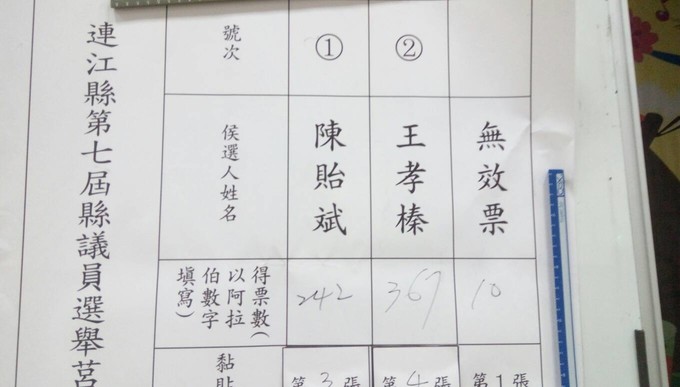 連江縣第七屆縣議員選舉莒
號次 ① ②
侯選人姓名 陳貽斌 王孝榛 無效票
得票數(以阿拉伯數字填寫) 242 367 10
黏貼 第3張 第4張 第1張